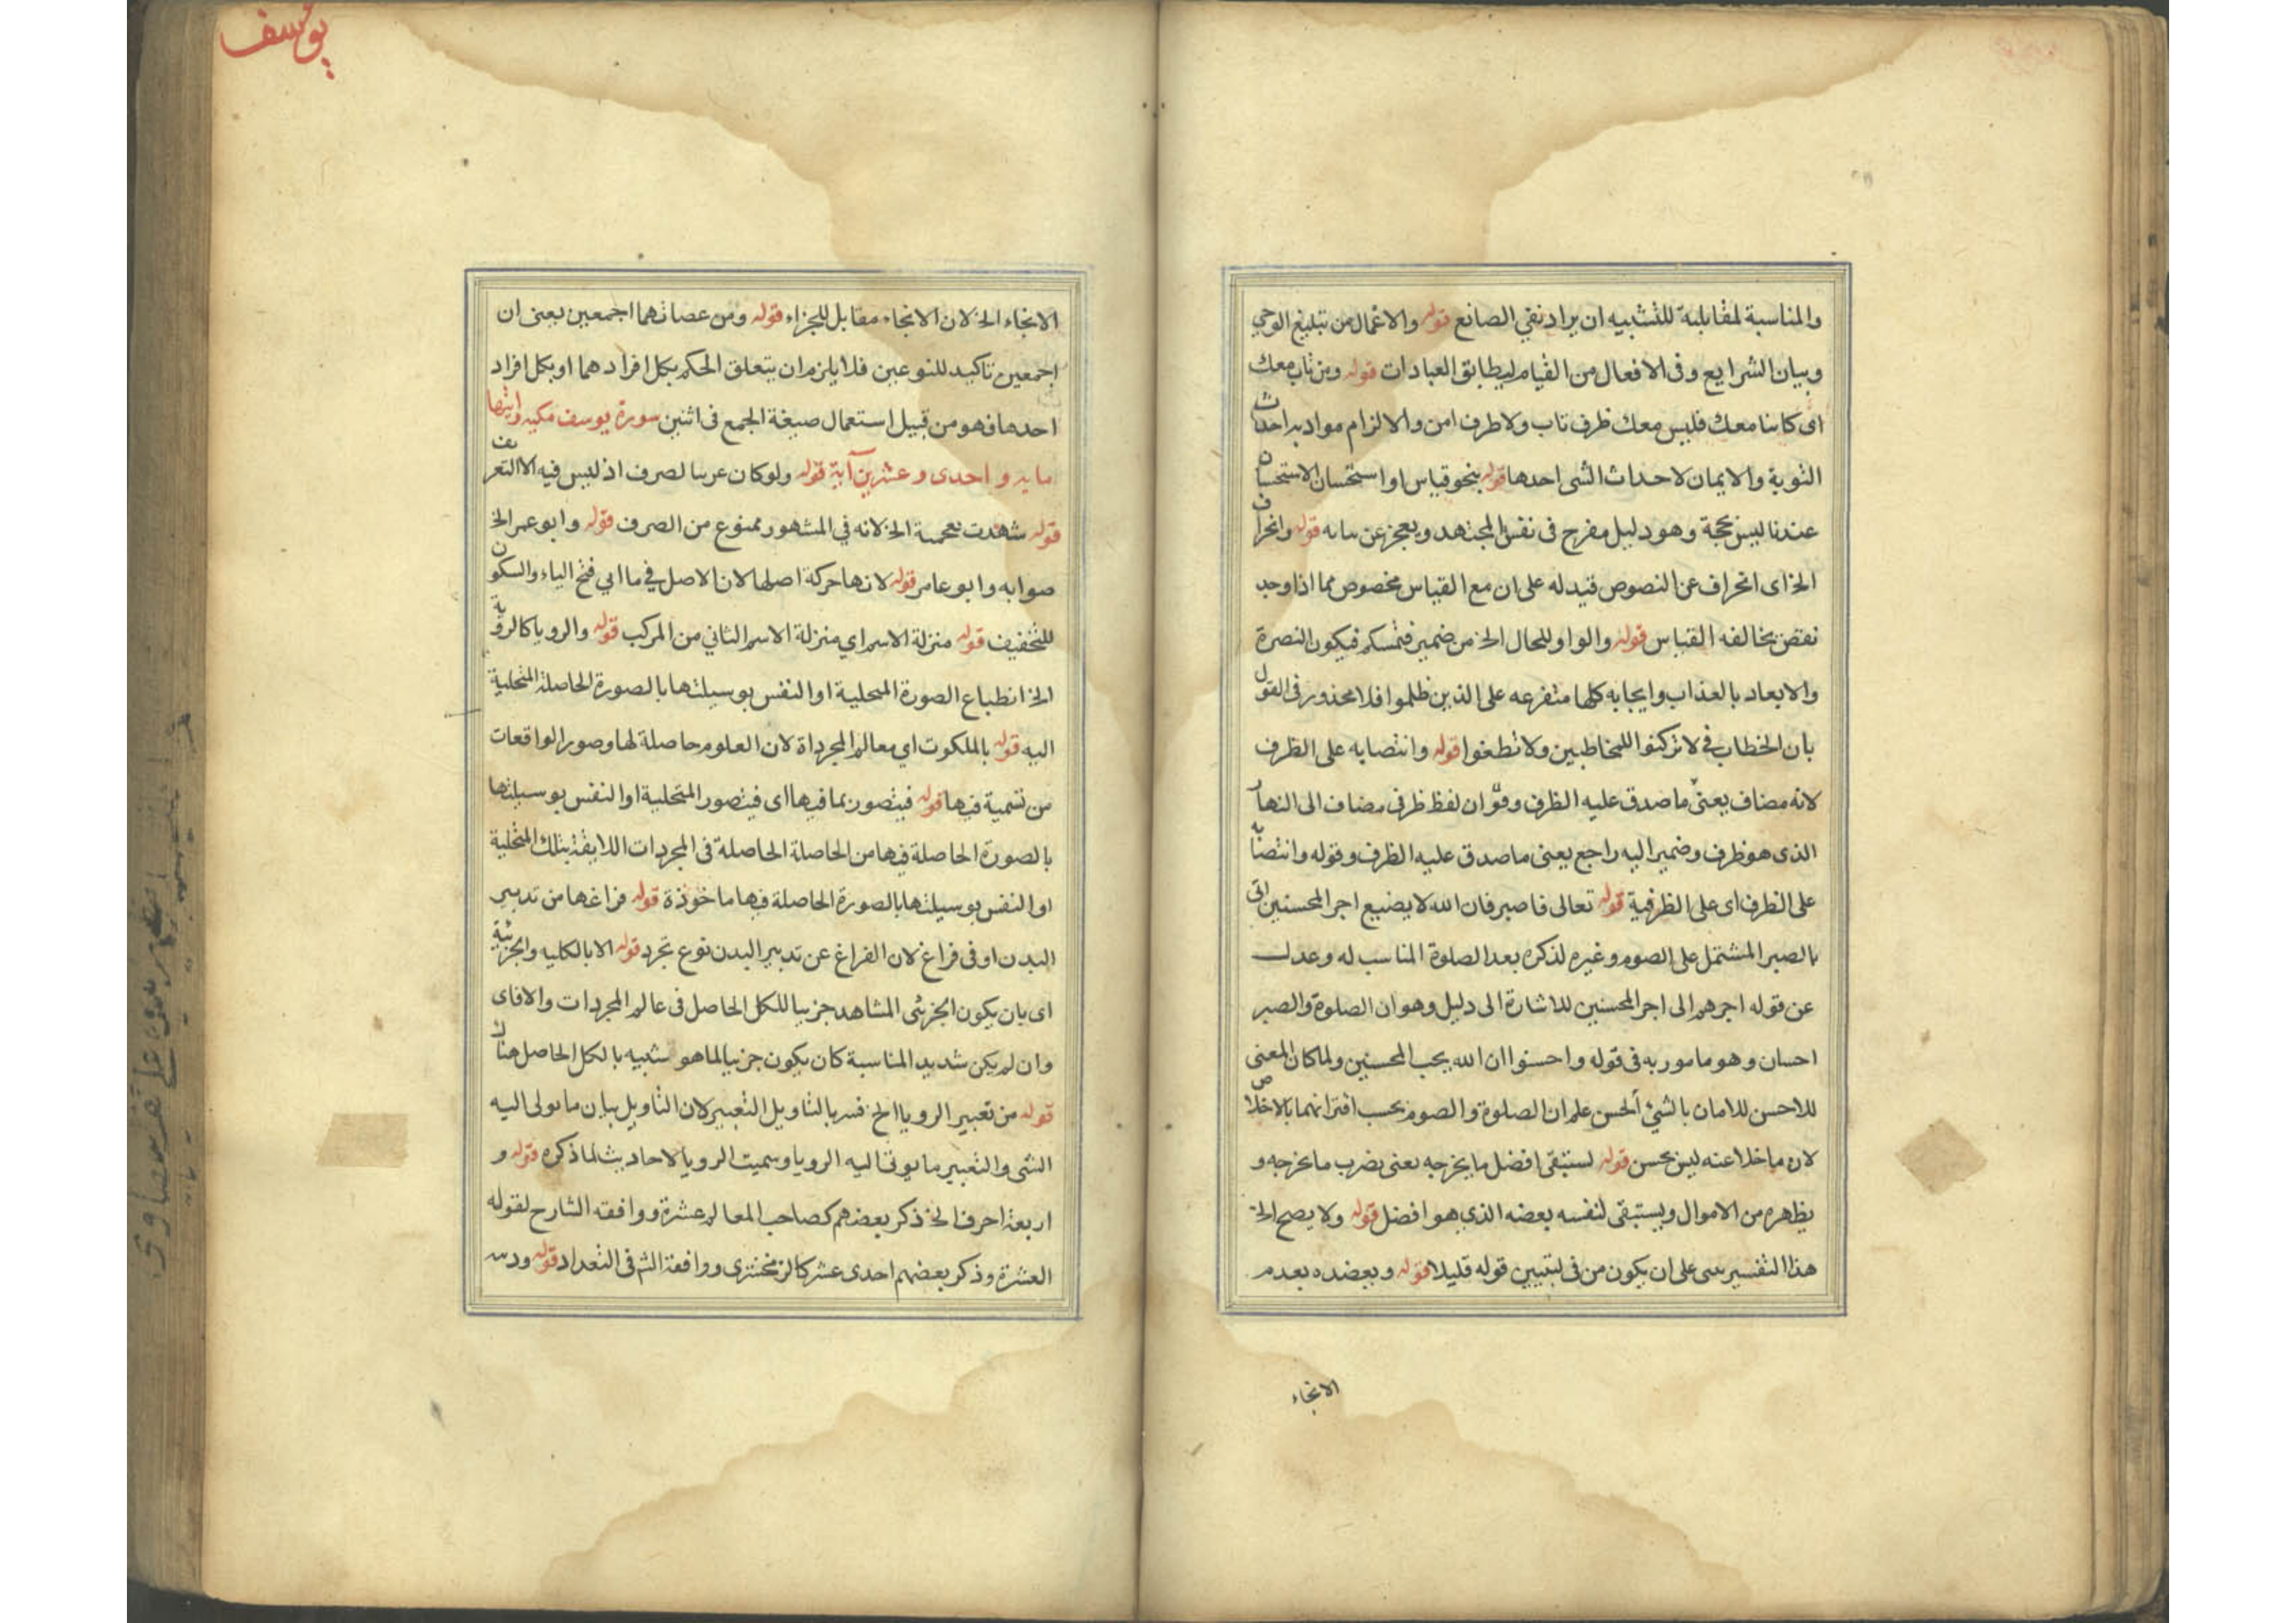 والمناسبة لمقابلية للتشبيه ان يراد نفي الصانع قوله والاعمال من تبليغ الوحي
وبيان الشرايع وفى الافعال من القيام ليطابق العبادات قوله ومن تاب معك
اى كاينا معك فليس معك ظرف تاب ولا ظرف امن والالزام مواد به احداث
التوبة والايمان لاحداث الشى احدها قوله بنحو قياس او استحسان الاستحسان
عندنا ليس بحجة وهو دليل مفرح فى نفس المجتهد ويعجز عن بيانه قوله وانحراف
الخ اى انحراف عن النصوص قيد له على ان مع القياس مخصوص مما اذا وجد
نقص يخالفه القياس قوله والواو للحال الخ من ضمير فتمسكم فيكون النصرة
والابعاد بالعذاب وايجابه كلها متفرعه على الذين ظلموا فلا محذور فى القول
بان الخطاب فى لا تركنوا للمخاطبين ولا تطغوا قوله وانتصابه على الظرف
لانه مضاف يعنى ما صدق عليه الظرف وقو ان لفظ ظرفى مضاف الى النهار
الذى هو ظرف وضمير اليه راجع يعنى ما صدق عليه الظرف وقوله وانتصابه
على الظرف اى على الظرفية قوله تعالى فاصبر فان الله لا يضيع اجر المحسنين اتى
بالصبر المشتمل على الصوم وغيره لذكره بعد الصلوة المناسب له وعدل
عن قوله اجرهم الى اجر المحسنين للاشارة الى دليل وهو ان الصلوة والصبر
احسان وهو مامور به فى قوله واحسنوا ان الله يحب المحسنين ولما كان المعنى
للاحسن للامان بالشئ الحسن علم ان الصلوة والصوم بحسب اقترانهما بالاخلاص
لان ما خلا عنه ليس بحسن قوله لستبقى افضل ما يخرجه يعنى يضرب ما يخرجه و
يظهره من الاموال ويستبقى لنفسه بعضه الذى هو افضل قوله ولا يصح الخ
هذا التفسير مبنى على ان يكون من فى لتبيين قوله قليلا قوله وبعضده بعدم
الانجاء
يوسف
الانجاء الخ لان الانجاء مقابل للجزاء قوله ومن عصاتهما اجمعين يعنى ان
اجمعين تاكيد للنوعين فلا يلزم ان يتعلق الحكم بكل افرادهما او بكل افراد
احدها فهو من قبيل استعمال صيغة الجمع فى اثنين سورة يوسف مكيه وايتها
مايه واحدى وعشرين آية قوله ولو كان عربيا لصرف اذ ليس فيه الا التعريف
قوله شهدت بعجمية الخ لانه في المشهور ممنوع من الصرف قوله وابو عمر الخ
صوابه وابو عامر قوله لانها حركة اصلها لان الاصل في ما ابي فتح الياء والسكون
للتخفيف قوله منزلة الاسم اي منزلة الاسم الثاني من المركب قوله والرويا كالروية
الخ انطباع الصورة المتحلية او النفس بوسيلتها بالصورة الحاصلة المتحلية
اليه قوله بالملكوت اي معالم المجرداة لان العلوم حاصلة لها وصور الواقعات
من تسمية فيها قوله فيتصور بما فيها اى فيتصور المتحلية او النفس بوسيلتها
بالصورة الحاصلة فيها من الحاصلة الحاصلة فى المجردات اللايقة بتلك المتحلية
او النفس بوسيلتها بالصورة الحاصلة فيها ماخوذة قوله فراغها من تدبير
البدن او فى فراغ لان الفراغ عن تدبير البدن نوع تجرد قوله الا بالكليه والجزئية
اى بان يكون الجزئى المشاهد جزييا للكل الحاصل فى عالم المجردات والافاى
وان لم يكن شديد المناسبة كان يكون جزييا لما هو شبيه بالكل الحاصل هناك
قوله من تعبير الرويا الخ فسر بالتاويل التعبير لان التاويل بيان ما يولى اليه
الشى والتعبير ما يوتى اليه الرويا وسميت الرويا لاحاديث لما ذكره قوله و
اربعة احرف الخ ذكر بعضهم كصاحب المعالم عشرة ووافقه الشارح لقوله
العشرة وذكر بعضهم احدى عشر كالزمخشرى ووافقة الشم فى التعداد قوله